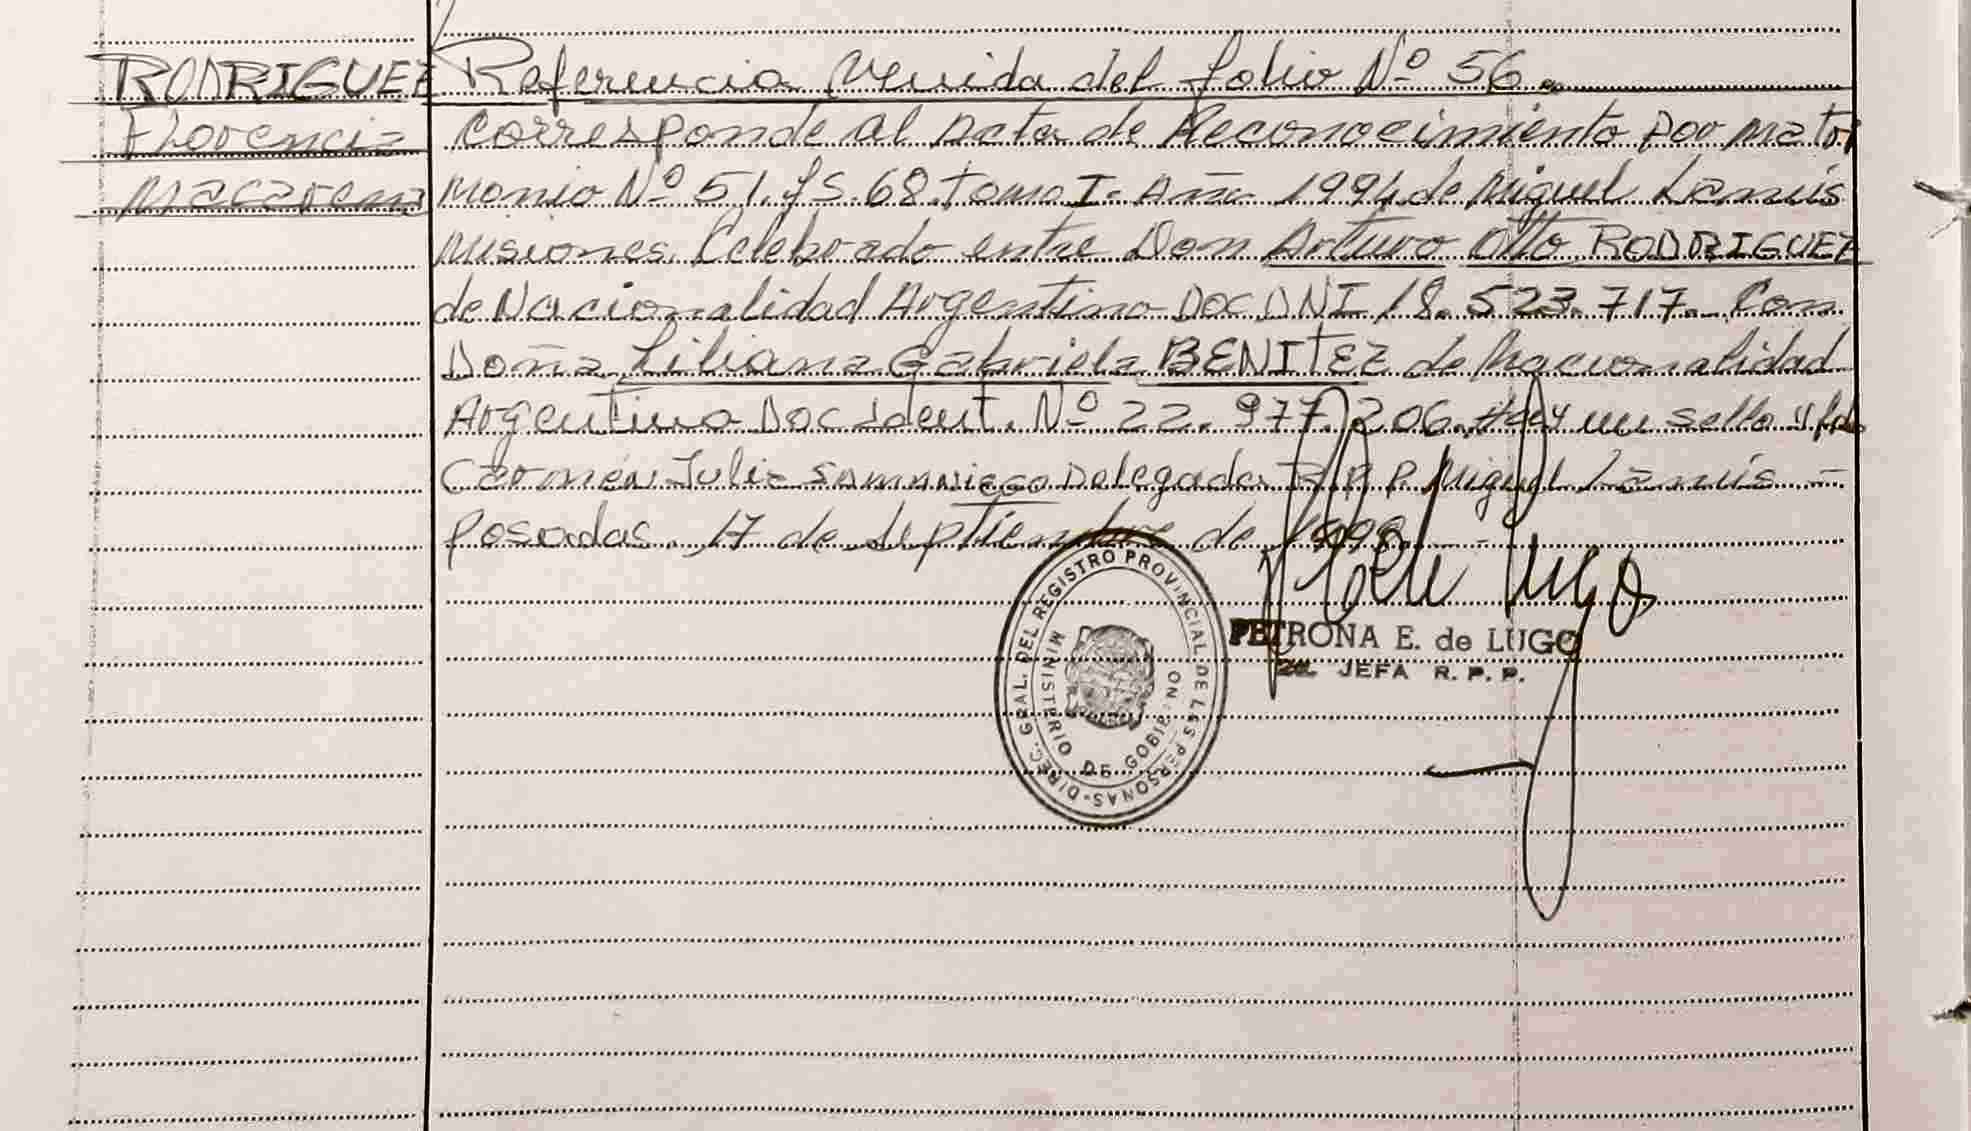 RODRIGUEZ
Florencia
Macarena
Referencia Venida del folio Nº 56.
Corresponde al Acta de Reconocimiento por matri
monio Nº 51. fs. 68. tomo I. Año 1994 de Miguel Lanús
Misiones. Celebrado entre Don Arturo Otto RODRIGUEZ
de Nacionalidad Argentino DOC DNI 18.523.717. Con
Doña Liliana Gabriela BENITEZ de Nacionalidad
Argentina Doc Ident. Nº 22.977.206. Hay un sello y fdo
Carmen Julia Samaniego Delegada R.P.P. Miguel Lanús -
Posadas. 17 de Septiembre de 1998 -
DIREC. GRAL. DEL REGISTRO PROVINCIAL DE LAS PERSONAS-
MINISTERIO DE GOBIERNO
PETRONA E. de LUGO
2a. JEFA R. P. P.